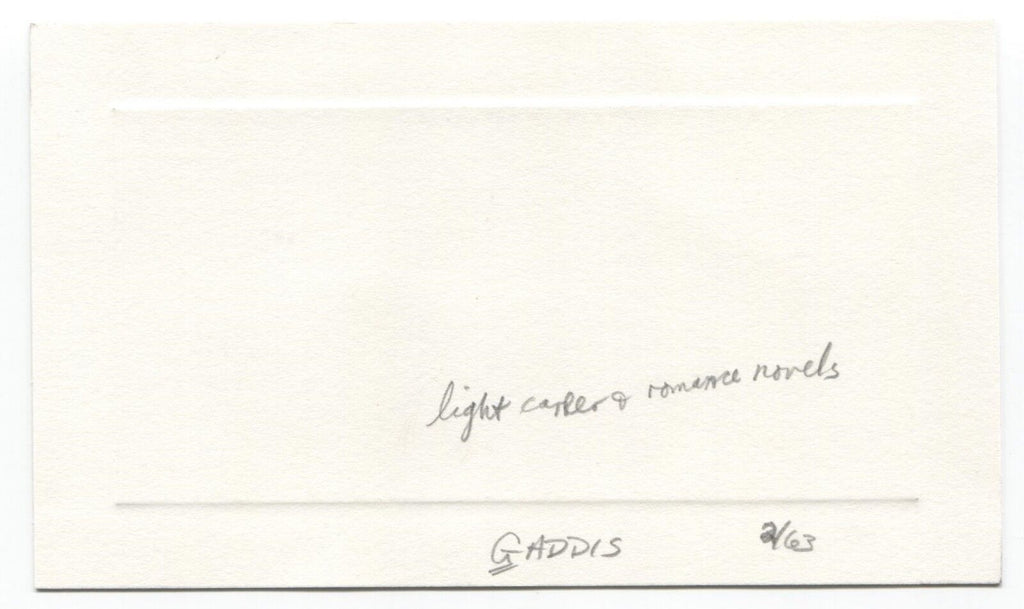 light career & romance novels
GADDIS 2/63